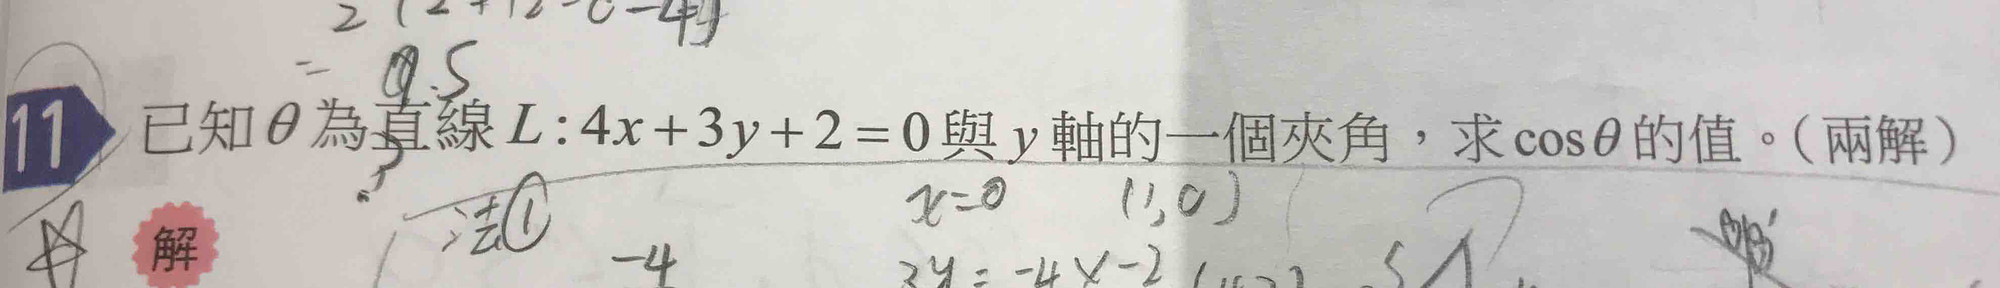 = 9.5
11 已知θ為直線L:4x+3y+2=0與y軸的一個夾角，求cosθ的值。(兩解)
?
法① x=0 (1,0)
解 -4 3y=-4x-2